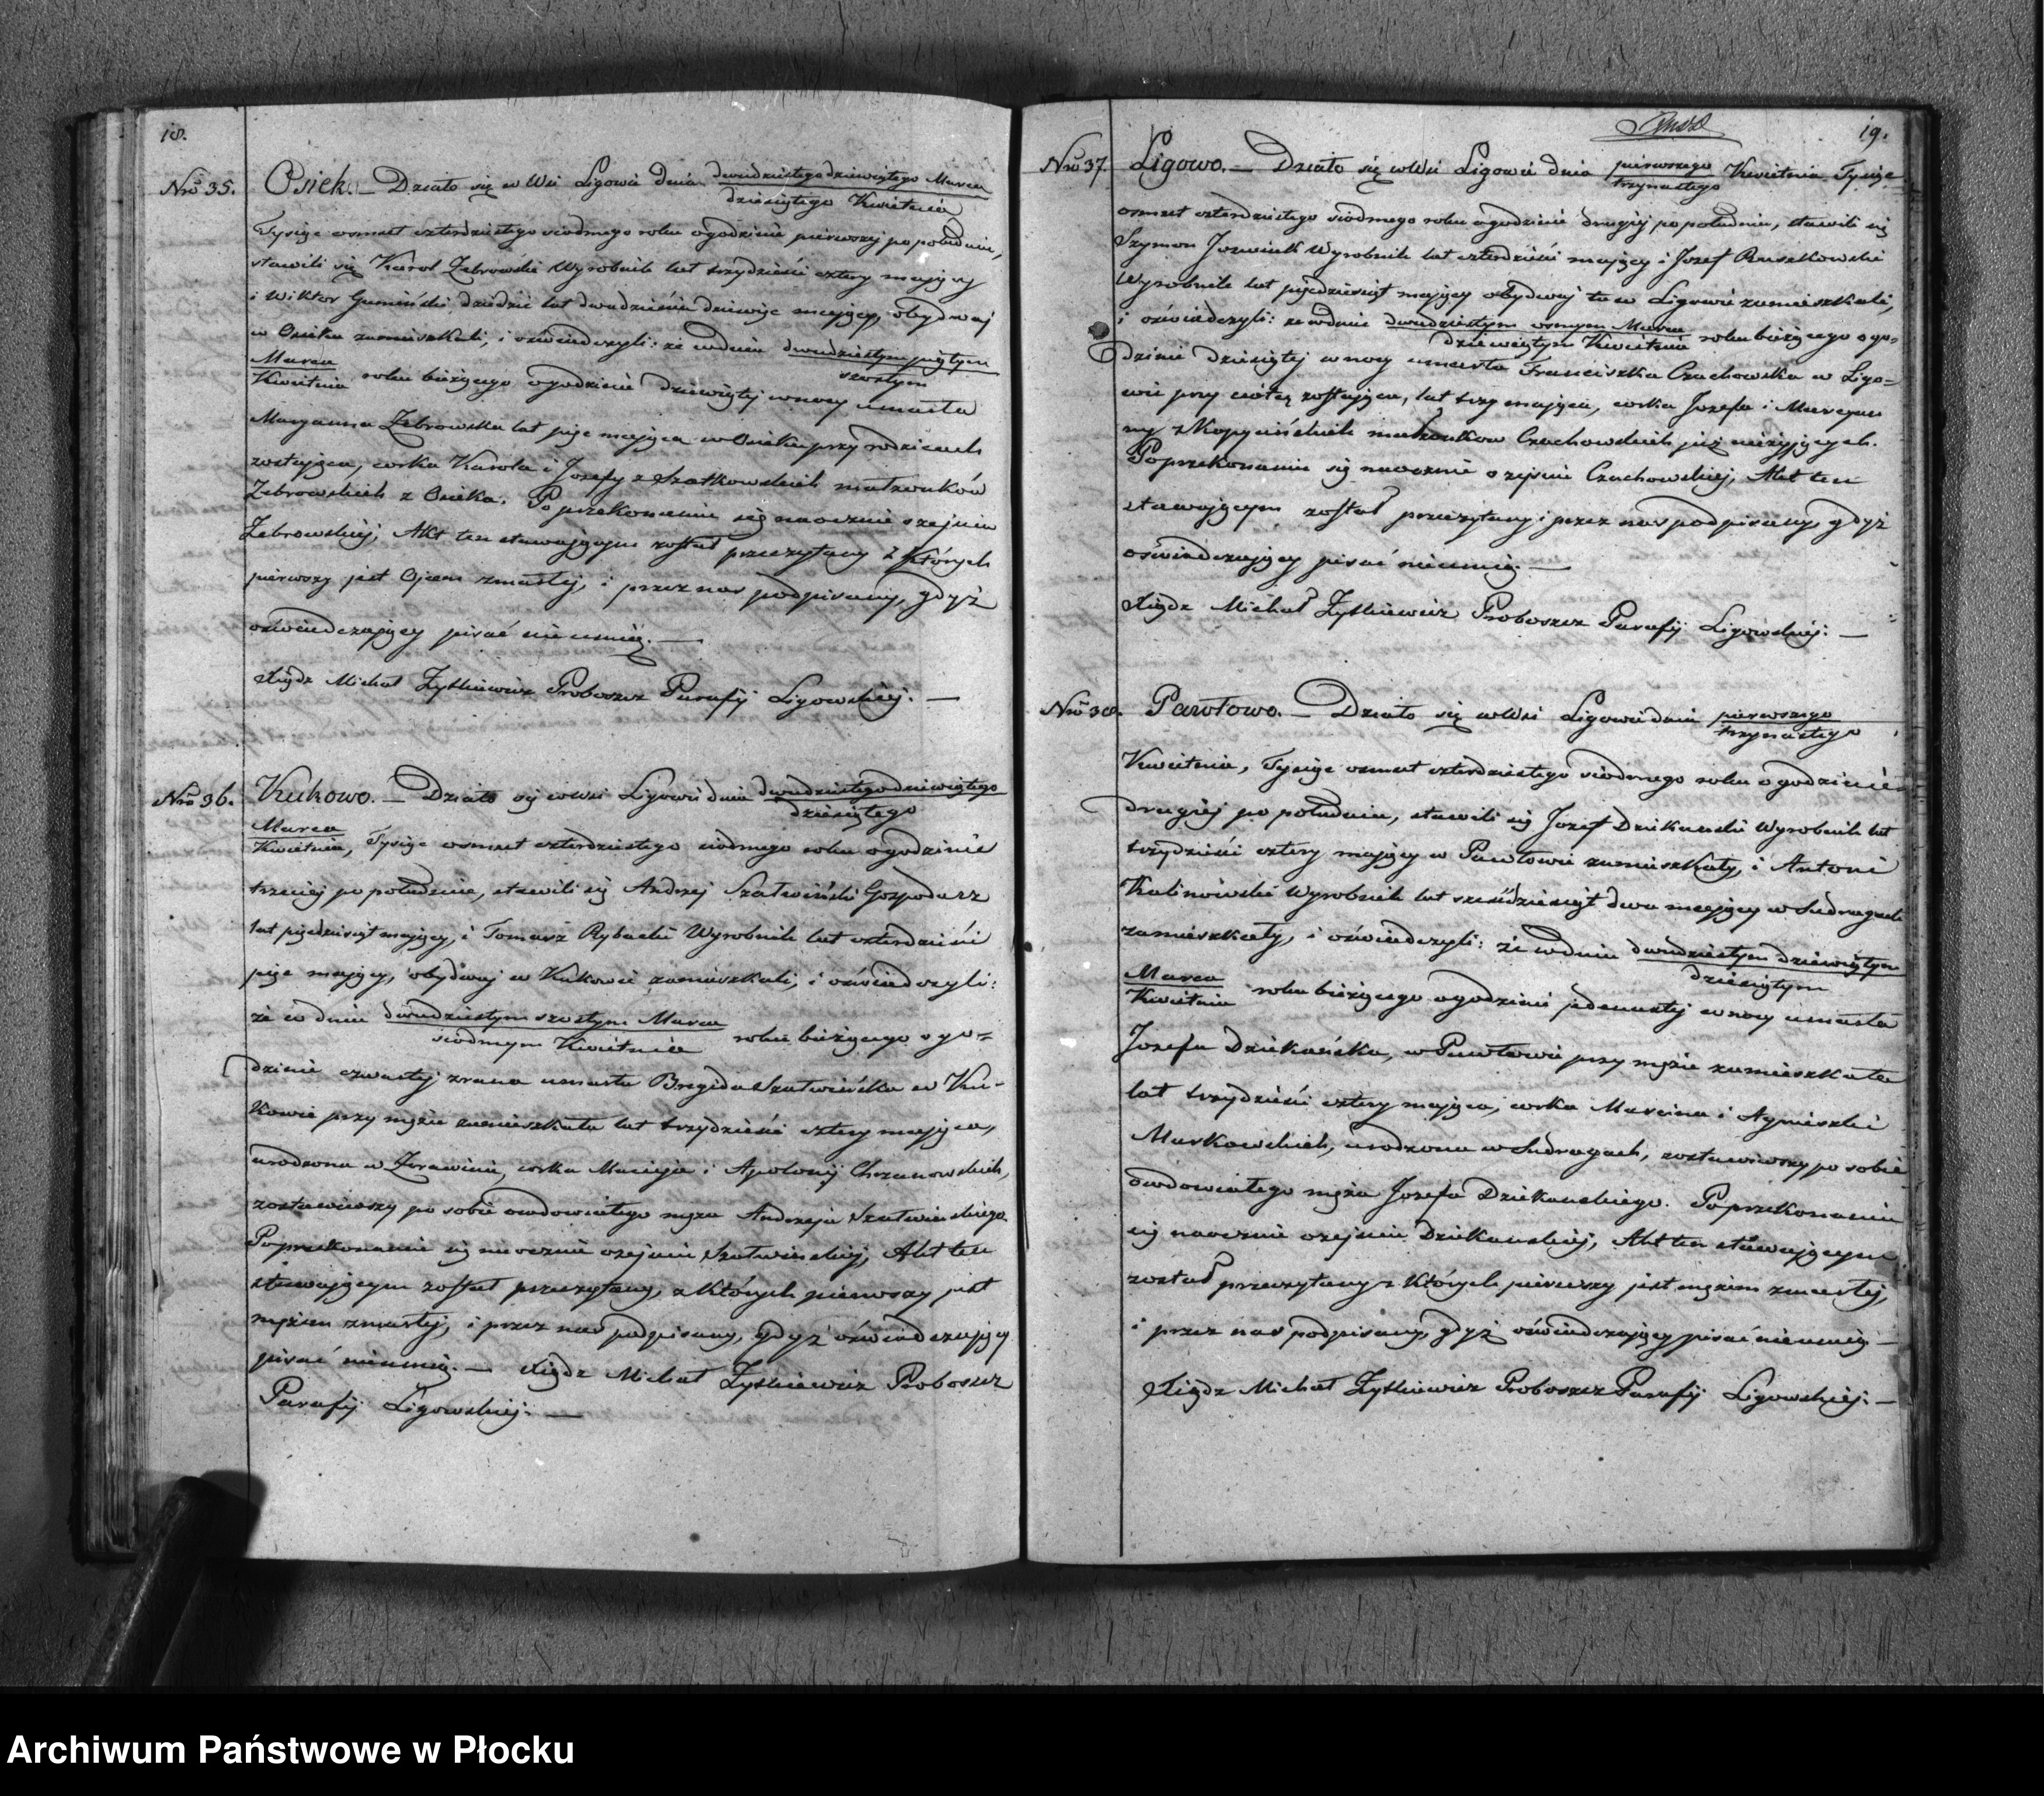 18.
Nro 35. Osiek. — Działo się w Wsi Ligowie dnia dwudziestego dziewiątego Marca
dziesiątego Kwietnia
Tysiąc osmset czterdziestego siodmego roku ogodzinie pierwszej po południu,
stawili się Karol Zebrowski Wyrobnik lat trzydzieści cztery mający
i Wiktor Gumiński dziedzic lat dwadzieścia dziewięć mający, obydwaj
w Osieku zamieszkali, i oświadczyli: że wdniu dwudziestym piątym
szostym
Marca
Kwietnia roku bieżącego ogodzinie dziewiątej wnocy umarła
Maryanna Zebrowska lat pięć mająca w Osieku przy rodzicach
zostająca, corka Karola i Jozefy z Szatkowskich małżonków
Zebrowskich z Osieka. Po przekonaniu się naocznie o zejściu
Zebrowskiej, Akt ten stawającym został przeczytany z których
pierwszy jest Ojcem zmarłej, i przez nas podpisany, gdyż
oświadczający pisać nieumią. —
Xiądz Michał Zyskiewicz Proboszcz Parafij Ligowskiej. —
Nro 36. Kukowo. — Działo się wWsi Ligowie dnia dwudziestego dziewiątego
dziesiątego
Marca
Kwietnia, Tysiąc osmset czterdziestego siodmego roku ogodzinie
trzeciej po południu, stawili się Andrzej Szatwiński Gospodarz
lat pięćdziesiąt mający, i Tomasz Rybacki Wyrobnik lat czterdzieści
pięć mający, obydwaj w Kukowie zamieszkali, i oświadczyli:
że w dniu dwudziestym szostym Marca
siodmym Kwietnia roku bieżącego ogo=
dzinie czwartej zrana umarła Brygida Szatwińska w Ku-
kowie przy mężu zamieszkała lat trzydzieści cztery mająca,
urodzona w Zurawinie, corka Macieja i Apolonij Chrzanowskich,
zostawiwszy po sobie owdowiałego męża Andrzeja Szatwińskiego.
Poprzekonaniu się naocznie ozejściu Szatwińskiej, Akt ten
stawającym został przeczytany, z których pierwszy jest
mężem zmarłej, i przez nas podpisany, gdyż oświadczający
pisać nieumią. — Xiądz Michał Zyskiewicz Proboszcz
Parafij Ligowskiej. —
19.
Nro 37. Ligowo. — Działo się wWsi Ligowie dnia pierwszego
trzynastego Kwietnia Tysiąc
osmset czterdziestego siodmego roku ogodzinie drugiej po południu, stawili się
Szymon Jozwiak Wyrobnik lat czterdzieści mający i Jozef Ruszkowski
Wyrobnik lat pięćdziesiąt mający obydwaj tu w Ligowie zamieszkali,
i oświadczyli: że wdniu dwudziestym osmym Marca
dziewiątym Kwietnia roku bieżącego ogo=
dzinie dziesiątej wnocy umarła Franciszka Czachowska w Ligo=
wie przy ciotce zostająca, lat trzy mająca, corka Jozefa i Maryan
ny z Kopycińskich małżonkow Czachowskich już nieżyjących.
Poprzekonaniu się naocznie o zejściu Czachowskiej, Akt ten
stawającym został przeczytany i przez nas podpisany, gdyż
oświadczający pisać nieumią. —
Xiądz Michał Zyskiewicz Proboszcz Parafij Ligowskiej. —
Nro 38. Pawłowo. — Działo się wWsi Ligowie dnia pierwszego
trzynastego
Kwietnia, Tysiąc osmset czterdziestego siodmego roku ogodzinie
drugiej po południu, stawili się Jozef Dzikanski Wyrobnik lat
trzydzieści cztery mający w Pawłowie zamieszkały, i Antoni
Kalinowski Wyrobnik lat sześćdziesiąt dwa mający w Sudragach
zamieszkały, i oświadczyli: że wdniu dwudziestym dziewiątym
dziesiątym
Marca
Kwietnia roku bieżącego ogodzinie jedenastej wnocy umarła
Jozefa Dzikańska, w Pawłowie przy mężu zamieszkała
lat trzydzieści cztery mająca, corka Marcina i Agnieszki
Markowskich, urodzona w Sudragach, zostawiwszy po sobie
owdowiałego męża Jozefa Dzikanskiego. Poprzekonaniu
się naocznie ozejściu Dzikanskiej, Akt ten stawającym
został przeczytany z których pierwszy jest mężem zmarłej,
i przez nas podpisany, gdyż oświadczający pisać nieumią. —
Xiądz Michał Zyskiewicz Proboszcz Parafij Ligowskiej. —
Archiwum Państwowe w Płocku